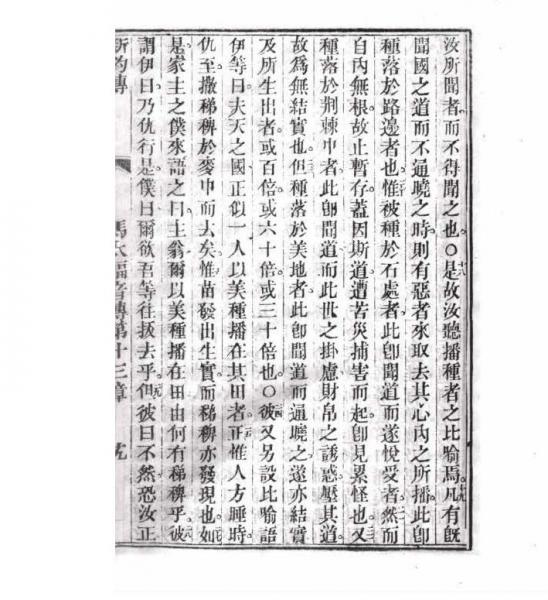 汝所聞者而不得聞之也。○十八是故汝聽播種者之比喻焉。十九凡有旣
聞國之道而不通曉之時則有惡者來取去其心內之所播此卽
種落於路邊者也。二十惟被種於石處者此卽聞道而遂悅受者。然而
自內無根故止暫存。蓋因斯道遭苦災捕害而起卽見累怪也。又
種落於荆棘中者此卽聞道而此世之掛慮財帛之誘惑壓其道
故爲無結實也。但種落於美地者此卽聞道而通曉之遂亦結實
及所生出者或百倍或六十倍或三十倍也。○彼又另設比喻語
伊等曰夫天之國正似一人以美種播在其田者。正惟人方睡時
仇至撒稊稗於麥中而去矣。惟苗發出生實而稊稗亦發現也。如
是家主之僕來語之曰主翁爾以美種播在田由何有稊稗乎。彼
謂伊曰乃仇行是。僕曰爾欲吾等往拔去乎。但彼曰不然恐汝正
馬太福音傳第十三章